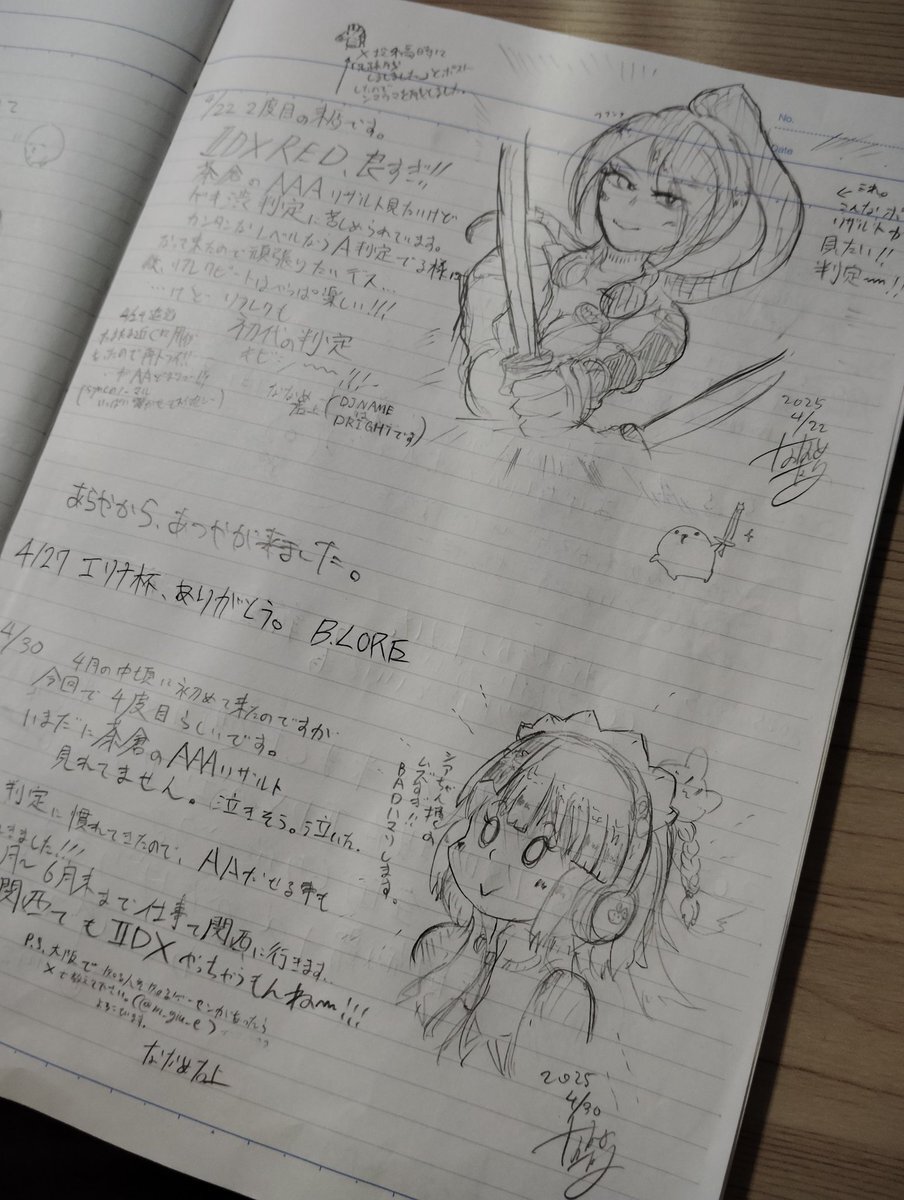 No.
Date
4/22 2度目の来店です。
IIDX RED、良すぎ!!
茶倉のAAAリザルト見たいけど
ドギ渋判定に苦しめられています。
カンタンなレベルならA判定でる様に
なって来たので頑張りたいデス…
後、リフレクビートはやっぱ楽しい!!!
…けど、リフレクも
初代の判定
キビシ〜〜!!!
ななめ
(DJ NAME
は
DRIGHTです)
フランシ
← これ。
こんな
リザルトが
見たい!!
判定〜〜!!
2025
4/22
あらやから、あつやが来ました。
4/27 エリナ杯、ありがとう。 B.LORE
4/30
4月の中頃に初めて来たのですが
今回で4度目らしいです。
いまだに茶倉のAAAリザルト
見れてません。泣きそう。泣いた。
判定に慣れてきたので、AAだせる事も
きました!!!
月〜6月末まで仕事で関西に行きます…
関西でもIIDXやっちゃうもんね〜〜!!!
P.S. 大阪で
Xで教えて下さい。(@m_giu_e)
よろこびます。
シアちゃん
ムズすぎ!!
BADハマりします。
2025
4/30